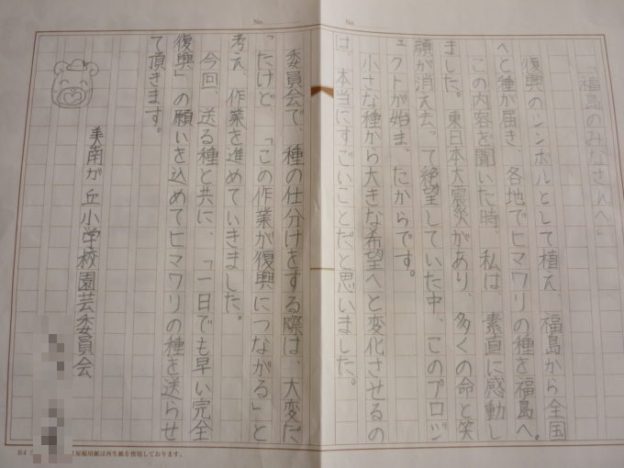 「福島のみなさんへ」
復興のシンボルとして植え、福島から全国
へと種が届き、各地でヒマワリの種を福島へ。
この内容を聞いた時、私は、素直に感動し
ました。東日本大震災があり、多くの命と笑
顔が消え去って絶望していた中、このプロジ
ェクトが始まったからです。
小さな種から大きな希望へと変化させるの
は、本当にすごいことだと思いました。
委員会で、種の仕分けをする際は、大変だ
ったけど、「この作業が復興につながる」と
考え、作業を進めていきました。
今回、送る種と共に、「一日でも早い完全
復興」の願いを込めてヒマワリの種を送らせ
て頂きます。
美南が丘小学校園芸委員会
No.
No.
原稿用紙は再生紙を使用しております。